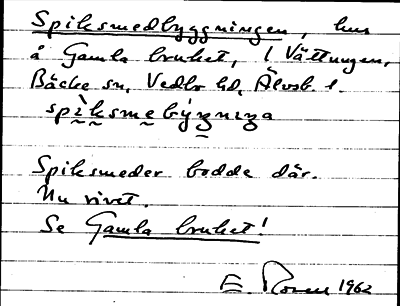 Spiksmedbyggningen, hus
å Gamla bruket, l Vättungen,
Bäcke sn, Vedbo hd, Älvsb. l.
Spiksmeder bodde där.
Nu rivet.
Se Gamla bruket!
E. Rosen 1962